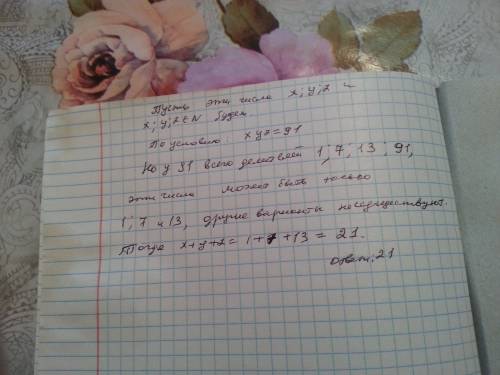 Пусть эти числа x; y; z –
x; y; z ∈ N будет.
По условию: xyz = 91
Но у 91 всего делителей 1; 7; 13; 91,
эти числа может быть только
1; 7 и 13, другие варианты несуществуют.
Тогда x+y+z = 1+7+13 = 21.
Ответ: 21